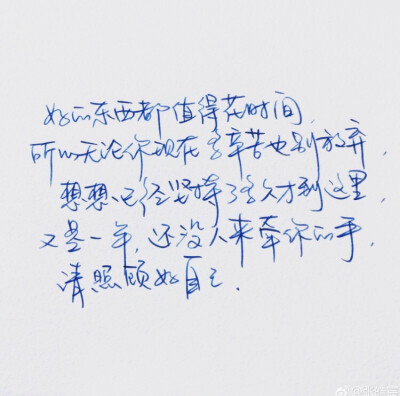 好的东西都值得花时间
所以无论你现在多辛苦也别放弃,
想想已经坚持了多久才到这里,
又是一年,还没人来牵你的手,
请照顾好自己.